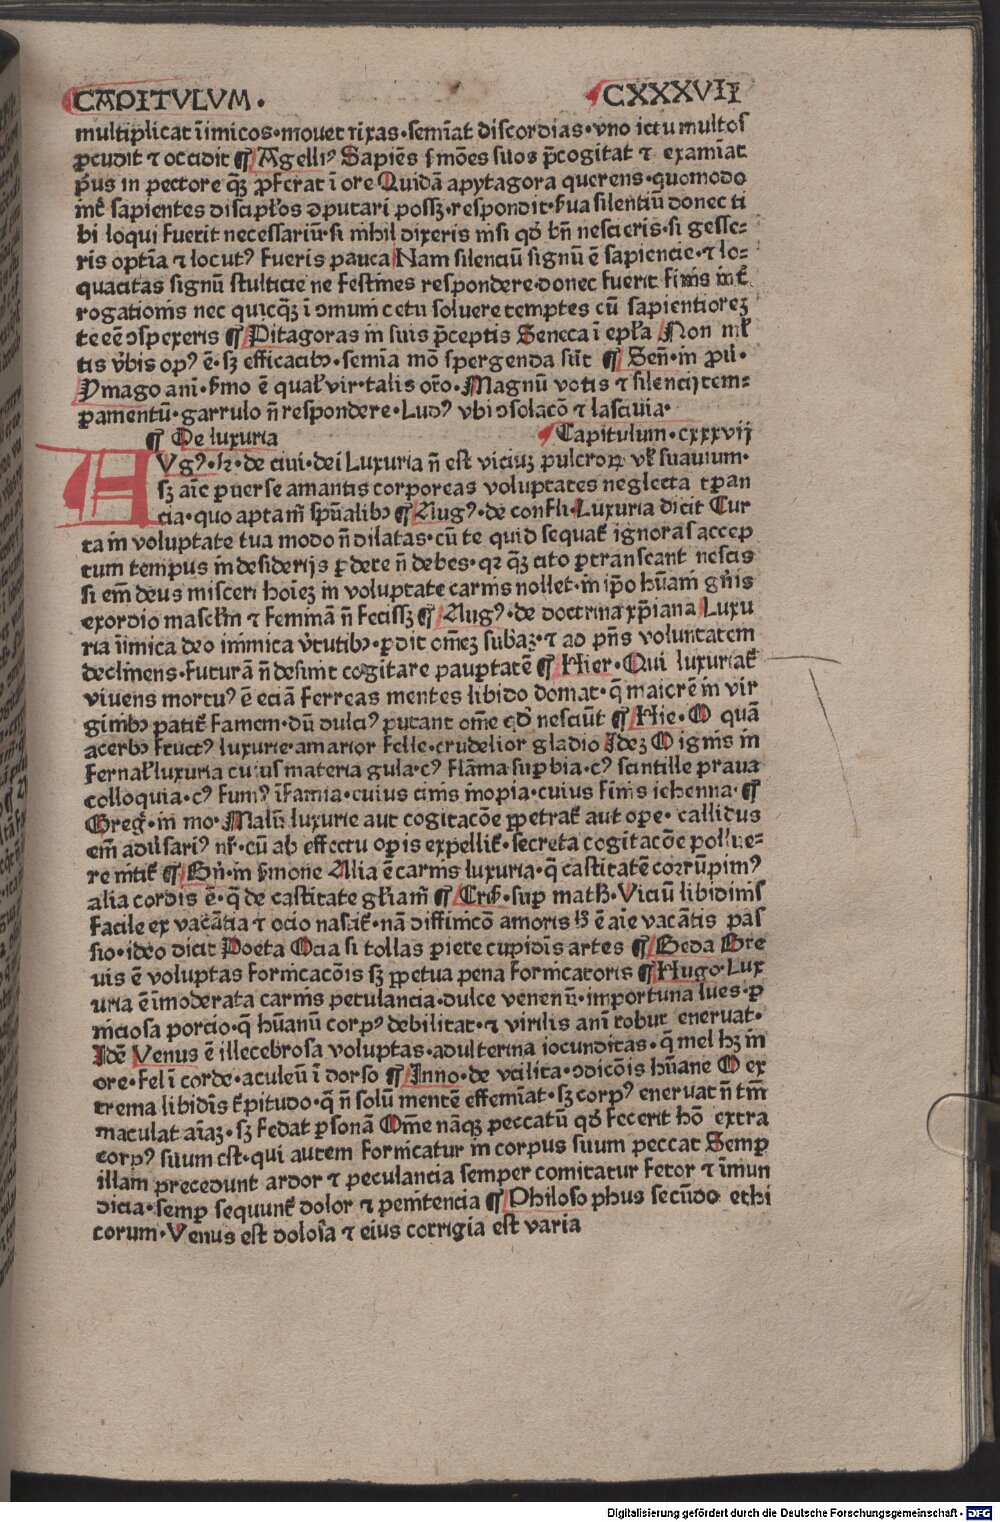 CAPITVLVM · CXXXVII
multiplicat īimicos·mouet rixas·semīat discordias·vno ictu multos
ꝑcudit ⁊ occidit ¶ Agelliꝰ Sapiēs ẜmōes suos p̄cogitat ⁊ examīat
pᵒus in pectore qꝫ ꝓferat ī ore Quidā a pytagora querens·quomodo
int̄ sapientes discipłos ꝺputari possꝫ·respondit·ẜua silentiū donec ti
bi loqui fuerit necessariū·si nihil dixeris nisi qđ bn̄ nescieris·si gesse-
ris optīa ⁊ locutꝰ fueris pauca Nam silenciū signū ē sapiencie·⁊ lo-
quacitas signū stulticie ne festines respondere·donec fuerit finis int̄
rogationis nec quicqꝫ ī ↄmuni cetu soluere temptes cū sapientiorez
te eē ↄspexeris ¶ Pitagoras in suis p̄ceptis Seneca ī epła Non ml̄
tis v̄bis opꝰ ē·sꝫ efficacibꝫ·semīa mō spergenda sūt ¶ Sen̄·in ꝓū·
Ymago ani·ẜmo ē qual̄ vir·talis or̄o·Magnū votis ⁊ silencij tem-
ꝑamentū·garrulo n̄ respondere·Ludꝰ vbi ↄsolacō ⁊ lasciuia·
¶ De luxuria Capitulum·cxxxvij
AVgꝰ·li·de ciui·dei Luxuria n̄ est viciuz pulcroꝝ vl̄ suauium·
sꝫ aīe ꝑuerse amantis corporeas voluptates neglecta tꝑan
cia·quo aptam̄ spūalibꝫ ¶ Augꝰ·de confli·Luxuria dicit Cur
ta in voluptate tua modo n̄ dilatas·cū te quid sequat̄ ignoras accep
tum tempus in desiderijs ꝑdere n̄ debes·qꝛ qꝫ cito ꝑtranseant nescis
si em̄ deus misceri hoīez in voluptate carnis nollet·in ip̄o hūani gn̄is
exordio mascl̄m ⁊ feminā n̄ fecissꝫ ¶ Augꝰ·de doctrina xp̄iana Luxu
ria īimica deo inimica v̄tutibꝫ·ꝑdit om̄ez subaz·⁊ ad pn̄s voluntatem
declinens·futurā n̄ desinit cogitare pauꝑtatē ¶ Hier·Qui luxuriat̄
viuens mortuꝰ ē eciā ferreas mentes libido domat·q̄ maiorē in vir
ginibꝫ patit̄ famem·dū dulciꝰ putant om̄e qđ nesciūt ¶ Hie·O quā
acerbꝫ fructꝰ luxurie·amarior felle·crudelior gladio Idez O ignis in
fernal̄ luxuria cuius materia gula·cꝰ flāma suꝑbia·cꝰ scintille praua
colloquia·cꝰ fumꝰ īfamia·cuius cinis inopia·cuius finis iehenna·¶
Greg̊·in mo·Malū luxurie aut cogitacōe ꝑpetrat̄ aut ope·callidus
em̄ adūsariꝰ nr̄·cū ab effectu opis expellit̄·secreta cogitacōe pollue-
re nitit̄ ¶ Bn̄·in ẜmone Alia ē carnis luxuria·q̄ castitatē corrūpimꝰ
alia cordis ē·q̄ de castitate gl̄iam̄ ¶ Crīs̄·suꝑ math̄·Viciū libidinis
facile ex vacātia ⁊ ocio nascit̄·nā diffinicō amoris h̄ ē aīe vacātis pas
sio·ideo dicit Poeta Ocia si tollas ꝑiere cupidīs artes ¶ Beda Bre
uis ē voluptas fornicacōis sꝫ ꝑpetua pena fornicatoris ¶ Hugo·Lux
uria ē īmoderata carnis petulancia·dulce venenū·importuna lues·ꝑ
niciosa porcio·q̄ hūanū corpꝰ debilitat·⁊ virilis ani robur eneruat·
Idē Venus ē illecebrosa voluptas·adulterina iocunditas·q̄ mel hꝫ in
ore·fel ī corde·aculeū ī dorso ¶ Inno·de vtilita·ↄdicōis hūane O ex
trema libidīs t̄pitudo·q̄ n̄ solū mentē effemīat·sꝫ corpꝰ eneruat n̄ tm̄
maculat aīaz·sꝫ fedat ꝑsonā Om̄e nāqꝫ peccatū qđ fecerit hō extra
corpꝰ suum est·qui autem fornicatur in corpus suum peccat Semꝑ
illam precedunt ardor ⁊ petulancia semper comitatur fetor ⁊ īmun
dicia·semꝑ sequunt̄ dolor ⁊ penitencia ¶ Philosophus secūdo ethi
corum·Venus est dolosa ⁊ eius corrigia est varia
Digitalisierung gefördert durch die Deutsche Forschungsgemeinschaft - DFG